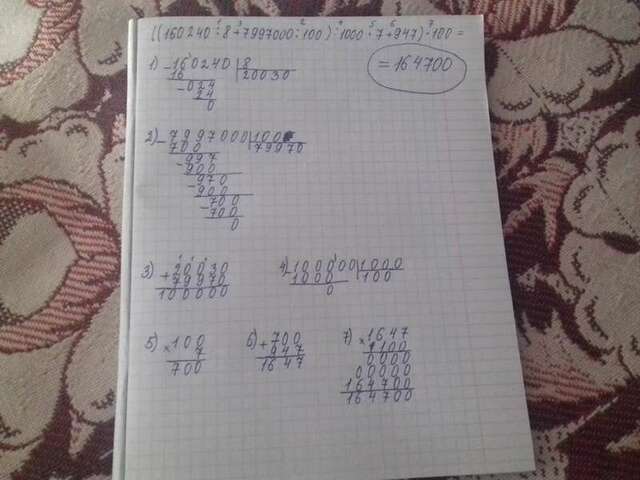 ((160240:8+7997000:100):1000·7+947)·100=
=164700
1) -160240 |8
16 20030
-024
24
0
2) -7997000 |100
700 79970
-997
900
-970
-900
-700
-700
0
3) +20030
79970
100000
4) -100000 |1000
1000 100
0
5) ×100
7
700
6) +700
947
1647
7) ×1647
100
0000
00000
164700
164700